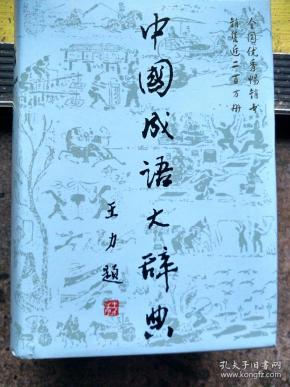 全国优秀畅销书
销售近二百万册
中國成语大辞典
王力題
孔夫子旧书网